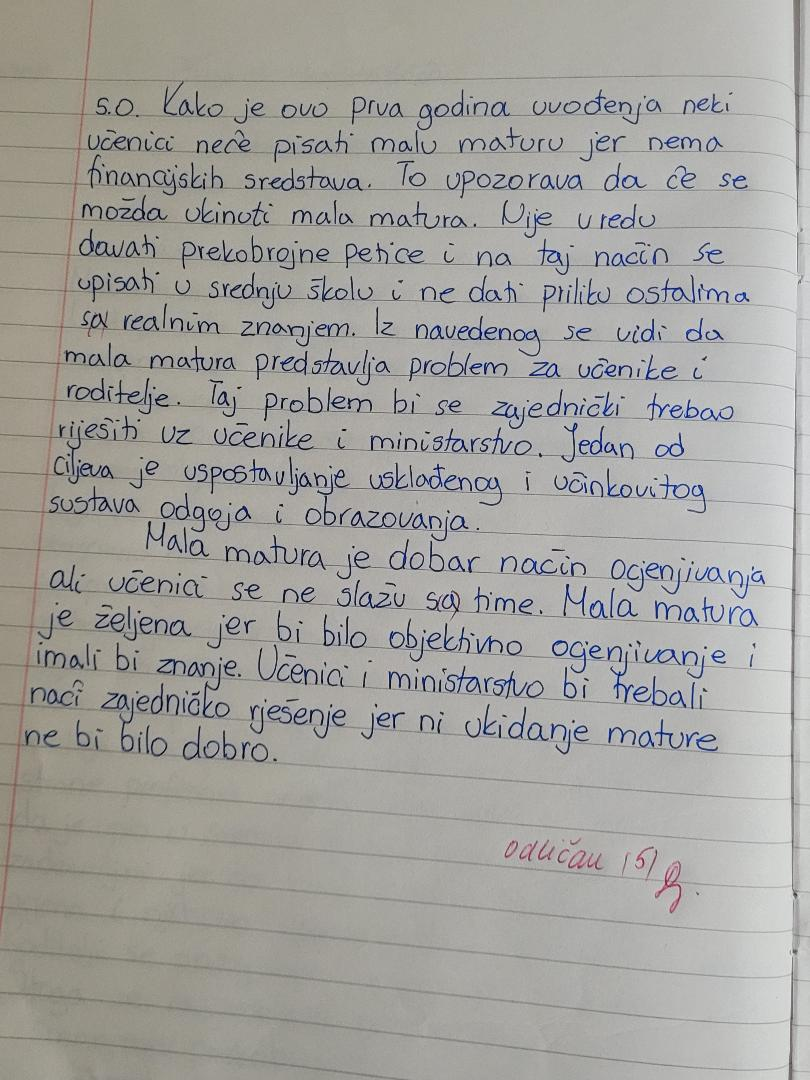 S.O. Kako je ovo prva godina uvođenja neki
učenici neće pisati malu maturu jer nema
financijskih sredstava. To upozorava da će se
možda ukinuti mala matura. Nije u redu
davati prekobrojne petice i na taj način se
upisati u srednju školu i ne dati priliku ostalima
sa realnim znanjem. Iz navedenog se vidi da
mala matura predstavlja problem za učenike i
roditelje. Taj problem bi se zajednički trebao
riješiti uz učenike i ministarstvo. Jedan od
ciljeva je uspostavljanje usklađenog i učinkovitog
sustava odgoja i obrazovanja.
Mala matura je dobar način ocjenjivanja
ali učenici se ne slažu sa time. Mala matura
je željena jer bi bilo objektivno ocjenjivanje i
imali bi znanje. Učenici i ministarstvo bi trebali
naći zajedničko rješenje jer ni ukidanje mature
ne bi bilo dobro.
odličan (5)